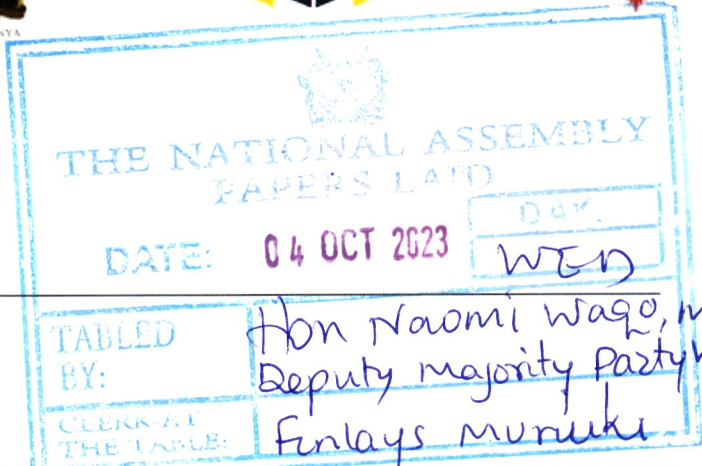 NYA
THE NATIONAL ASSEMBLY
PAPERS LAID
DATE: 04 OCT 2023
DAY.
WED
TABLED
BY:
Hon Naomi Waqo, M
Deputy Majority Party W
CLERK-AT
THE-TABLE:
Finlays Muriuki